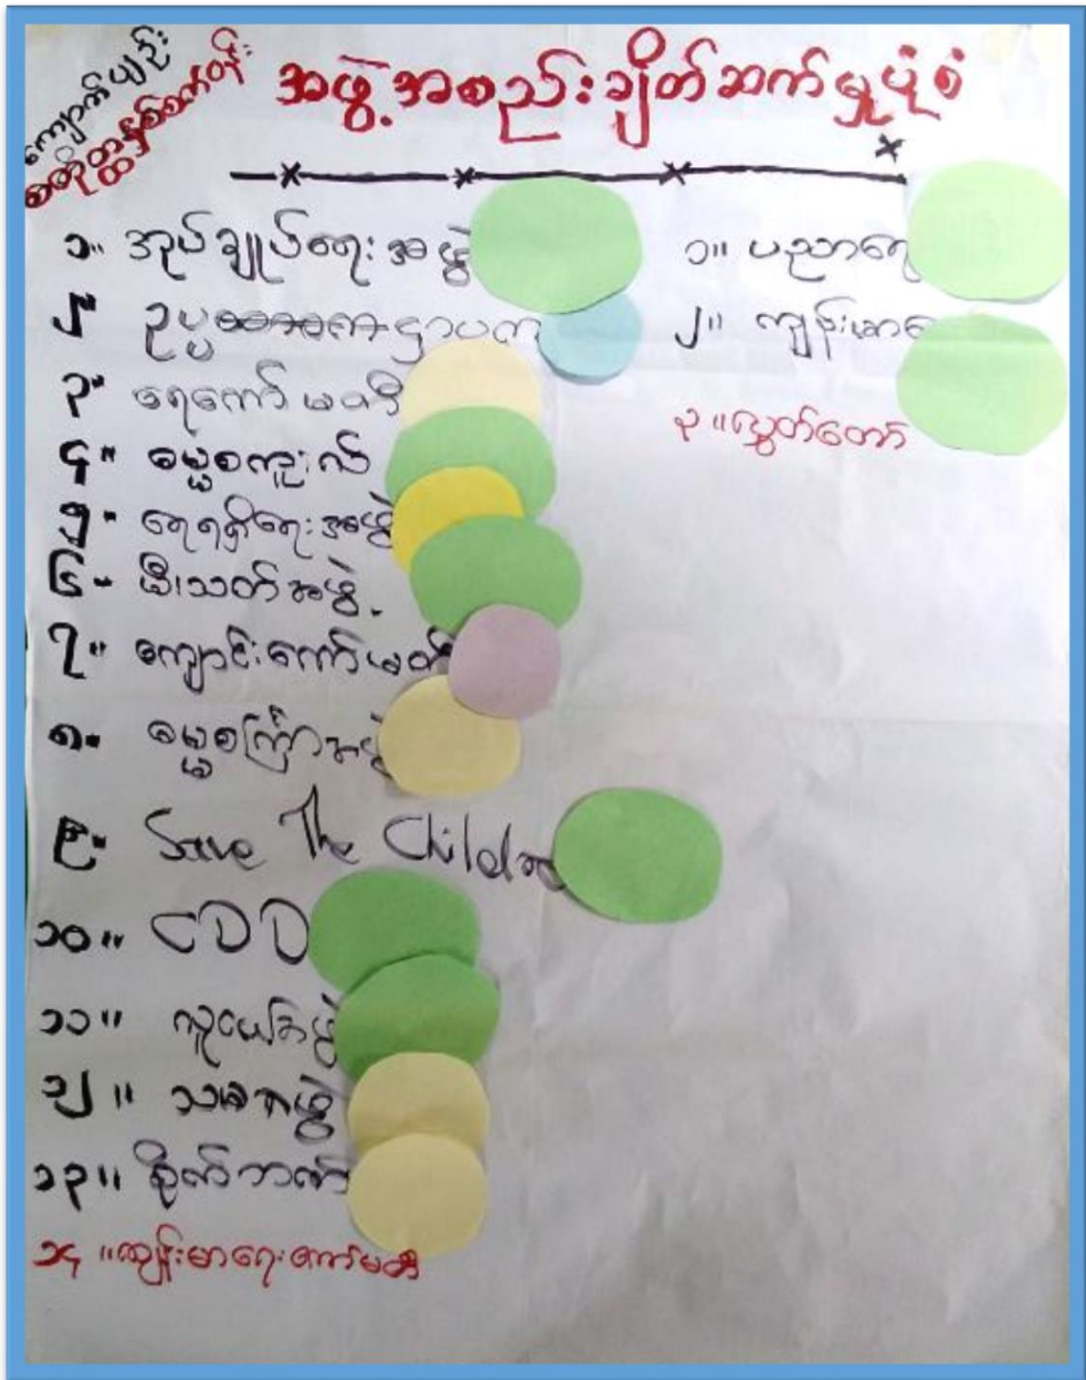 ကျောက်ပျဉ်း
အဖွဲ့အစည်းချိတ်ဆက်မှုပုံစံ
၁။ အုပ်ချုပ်ရေးအဖွဲ့
၂။
၃။ ရေကော်မတီ
၄။ ဓမ္မစကူးလ်
၅။ ရေရရှိရေးအဖွဲ့
၆။ မီးသတ်အဖွဲ့
၇။ ကျောင်းကော်မတီ
၈။ ဓမ္မစကြာအဖွဲ့
၉။ Save The Children
၁၀။ CDD
၁၁။ လူငယ်အဖွဲ့
၁၂။
၁၃။ စိုက်ဘဏ်
၁၄။ ကျန်းမာရေးကော်မတီ
၁။ ပညာရေ
၂။ ကျန်းမာရေ
၃။ လွှတ်တော်